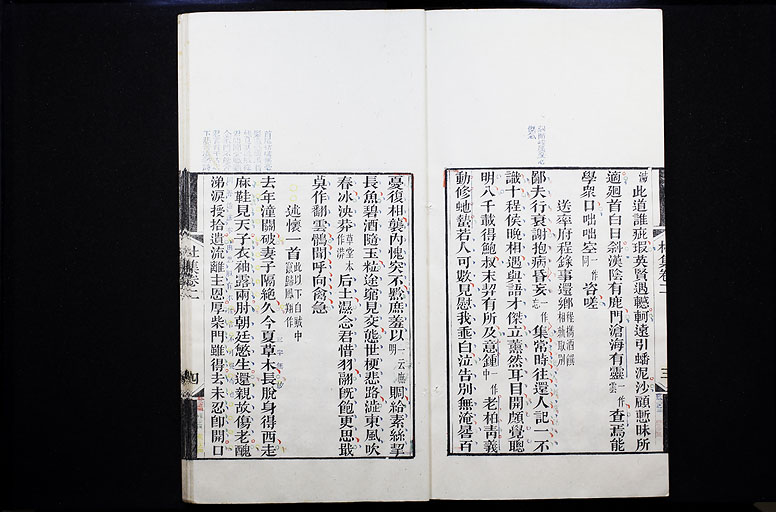 滯此道誰疵瑕英賢遇轗軻遠引蟠泥沙顧慙昧所
適廻首白日斜漢陰有鹿門滄海有靈一作雲查焉能
學衆口咄咄空一作同咨嗟
送率府程錄事還鄉程攜酒饌相就取別
鄙夫行衰謝抱病昏妄一作忘集常時往還人記一不
識十程侯晚相遇與語才傑立薰然耳目開頗覺聰
明八千載得鮑叔末契有所及意鍾一作中老柏青義
動修虵蟄若人可數見慰我垂白泣告別無淹晷百
憂復相襲內愧突不黔庶羞以一云應明賙給素絲挈
長魚碧酒隨玉粒途窮見交態世梗悲路澁東風吹
春冰泱莽草堂本作漭后土濕念君惜羽翮旣飽更思戢
莫作翻雲鶻聞呼向禽急
述懷一首此以下自賊中竄歸鳳翔作
去年潼關破妻子隔絕久今夏草木長脫身得西走
麻鞋見天子衣袖露兩肘朝廷愍生還親故傷老醜
涕淚授拾遺流離主恩厚柴門雖得去未忍卽開口
杜集卷二
三
杜集卷二
四